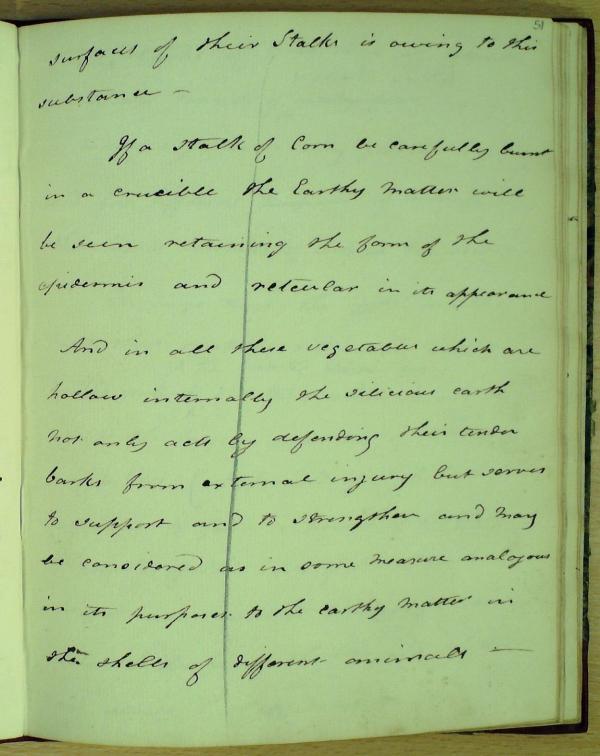 51
surfaces of their Stalks is owing to this
substance —
If a stalk of Corn be carefully burnt
in a crucible the Earthy Matter will
be seen retaining the form of the
epidermis and reteular in its appearance
And in all these vegetables which are
hollow internally the silicious earth
not only acts by defending their tender
barks from external injury but serves
to support and to strengthen and may
be considered as in some measure analogous
in its purposes to the earthy matter in
the shells of different animals —